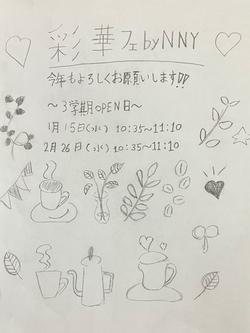 彩華フェ by NNY
今年もよろしくお願いします!!
～3学期OPEN日～
1月15日(水) 10:35～11:10
2月26日(水) 10:35～11:10